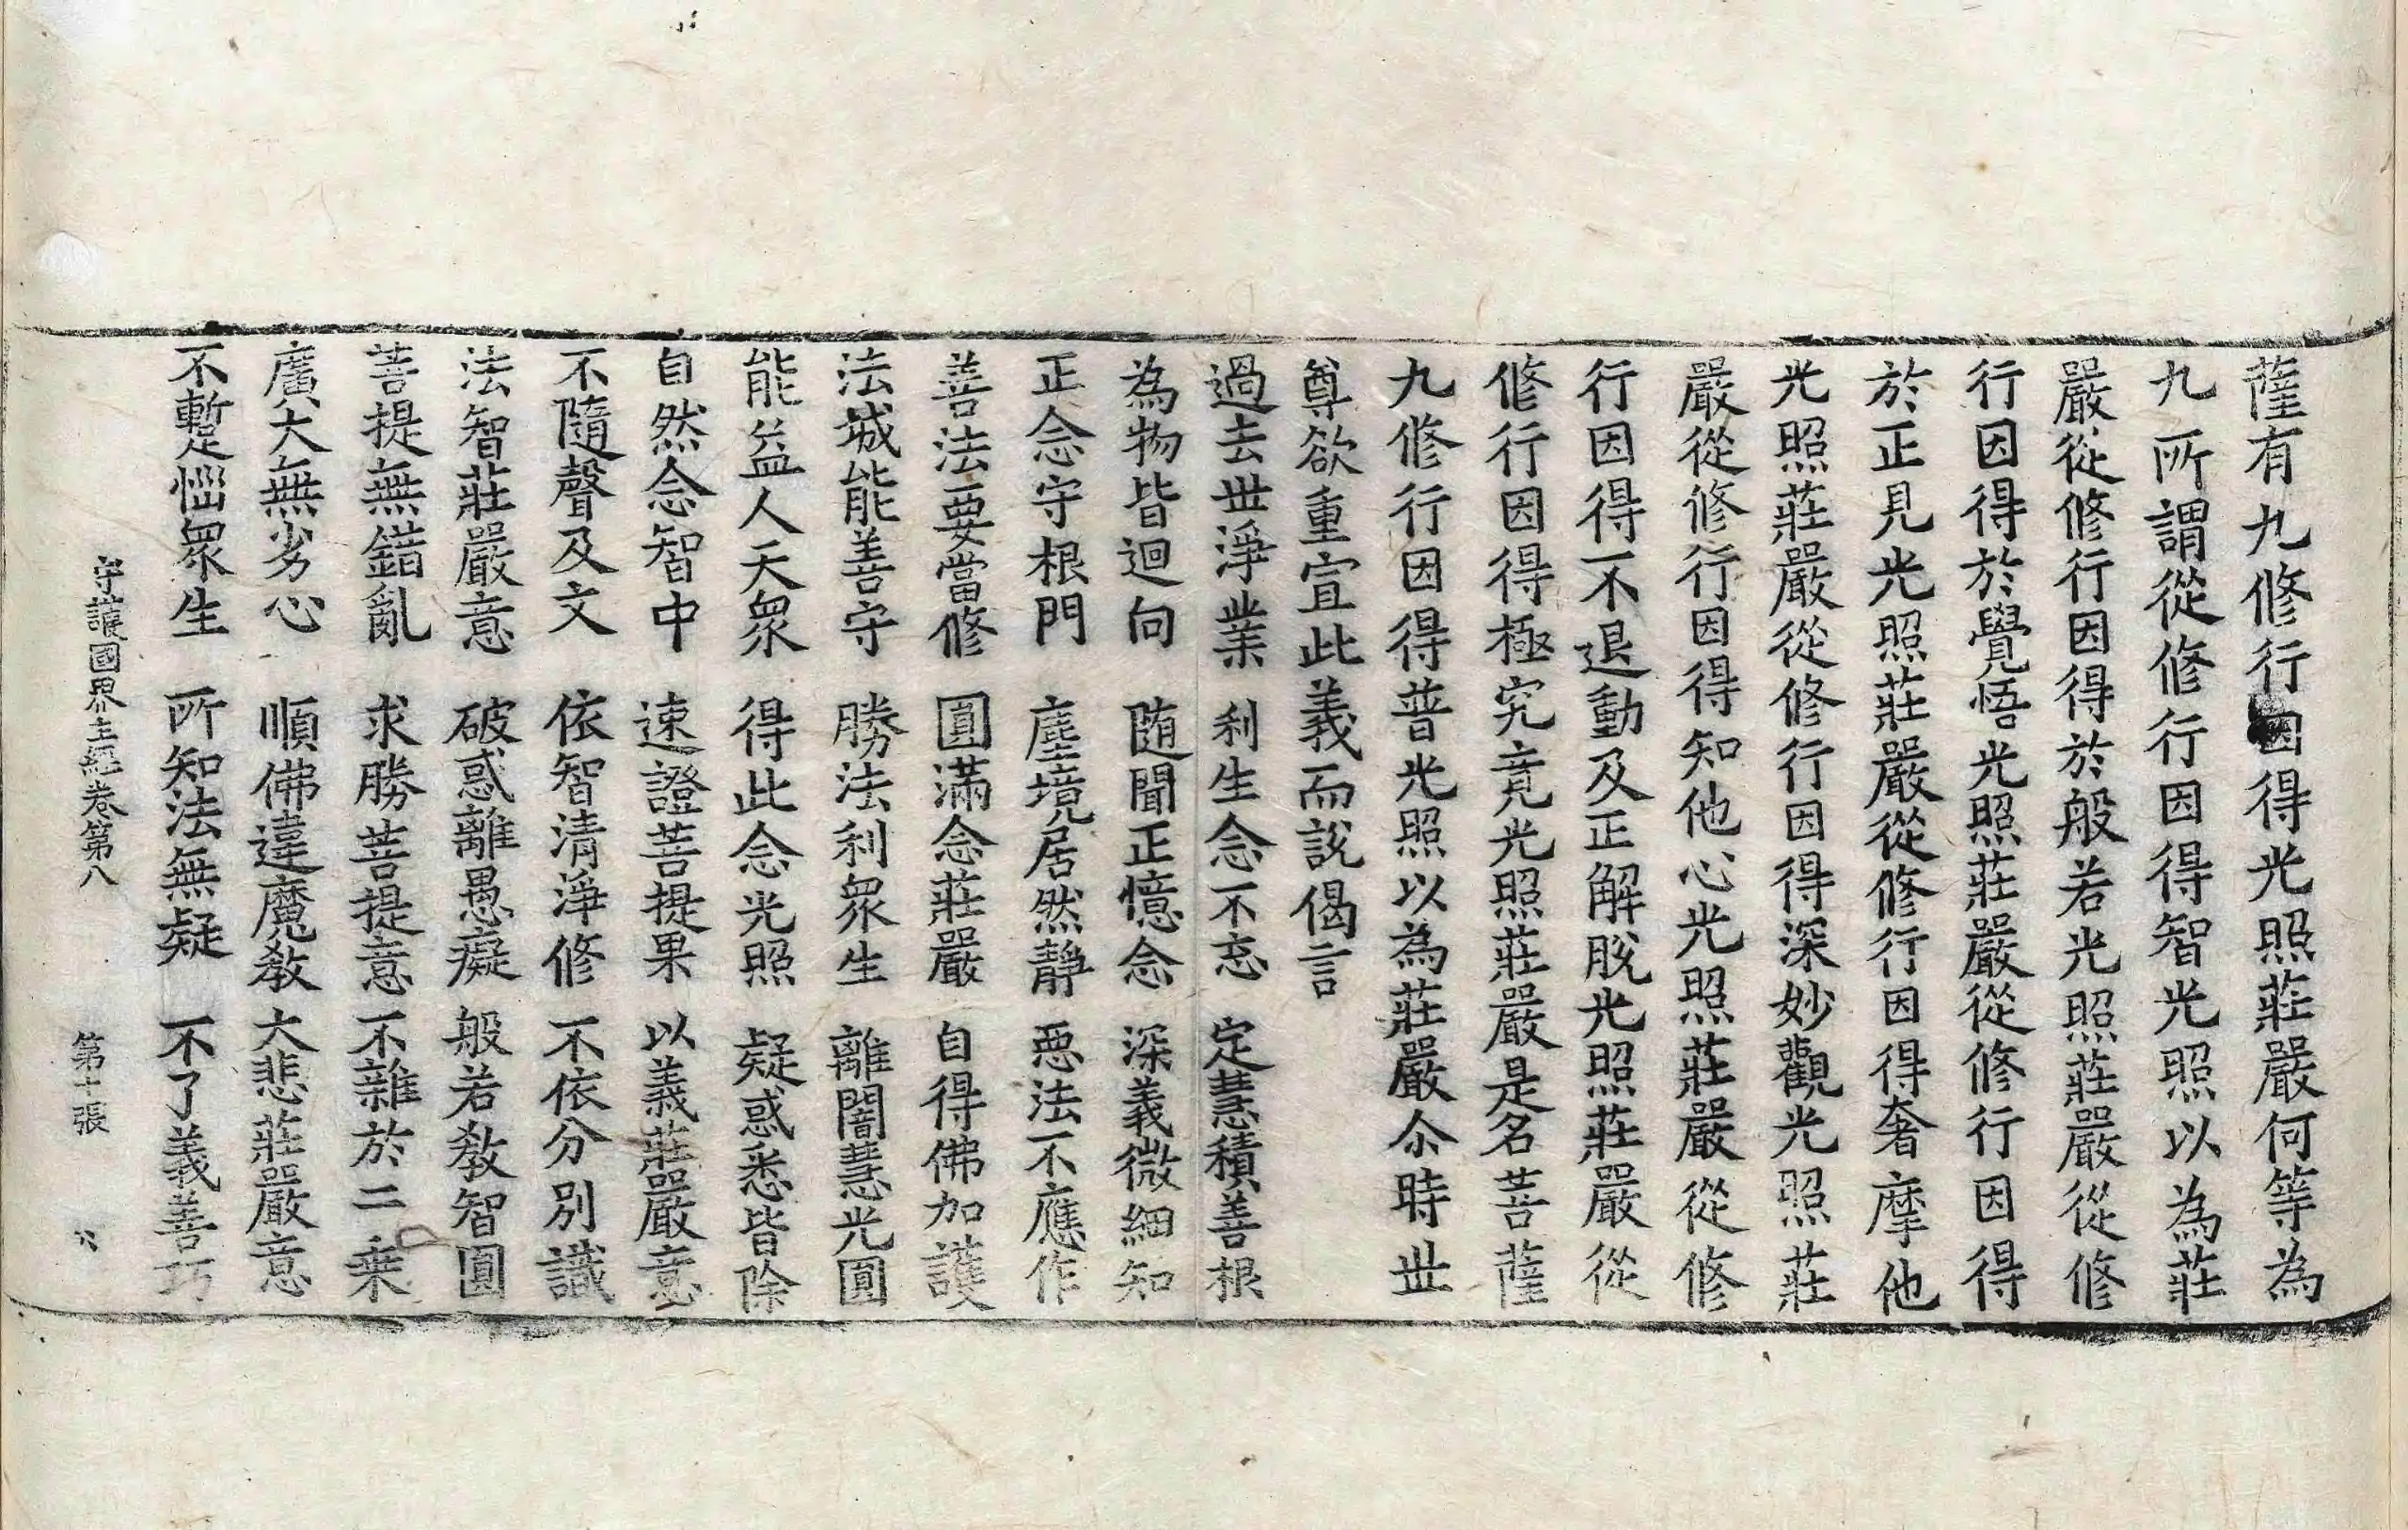 薩有九修行因得光照莊嚴何等為
九所謂從修行因得智光照以為莊
嚴從修行因得於般若光照莊嚴從修
行因得於覺悟光照莊嚴從修行因得
於正見光照莊嚴從修行因得奢摩他
光照莊嚴從修行因得深妙觀光照莊
嚴從修行因得知他心光照莊嚴從修
行因得不退動及正解脫光照莊嚴從
修行因得極究竟光照莊嚴是名菩薩
九修行因得普光照以為莊嚴尒時世
尊欲重宣此義而說偈言
過去世淨業　利生念不忘　定慧積善根
為物皆迴向　随聞正憶念　深義微細知
正念守根門　塵境居然靜　惡法不應作
善法要當修　圓滿念莊嚴　自得佛加護
法城能善守　勝法利衆生　離闇慧光圓
能益人天衆　得此念光照　疑惑悉皆除
自然念智中　速證菩提果　以義莊嚴意
不隨聲及文　依智清淨修　不依分別識
法智莊嚴意　破惑離愚癡　般若教智圓
菩提無錯亂　求勝菩提意　不雜於二乗
廣大無劣心　順佛違魔教　大悲莊嚴意
不暫惱衆生　所知法無疑　不了義善巧
守護國界主經卷第八　第十張